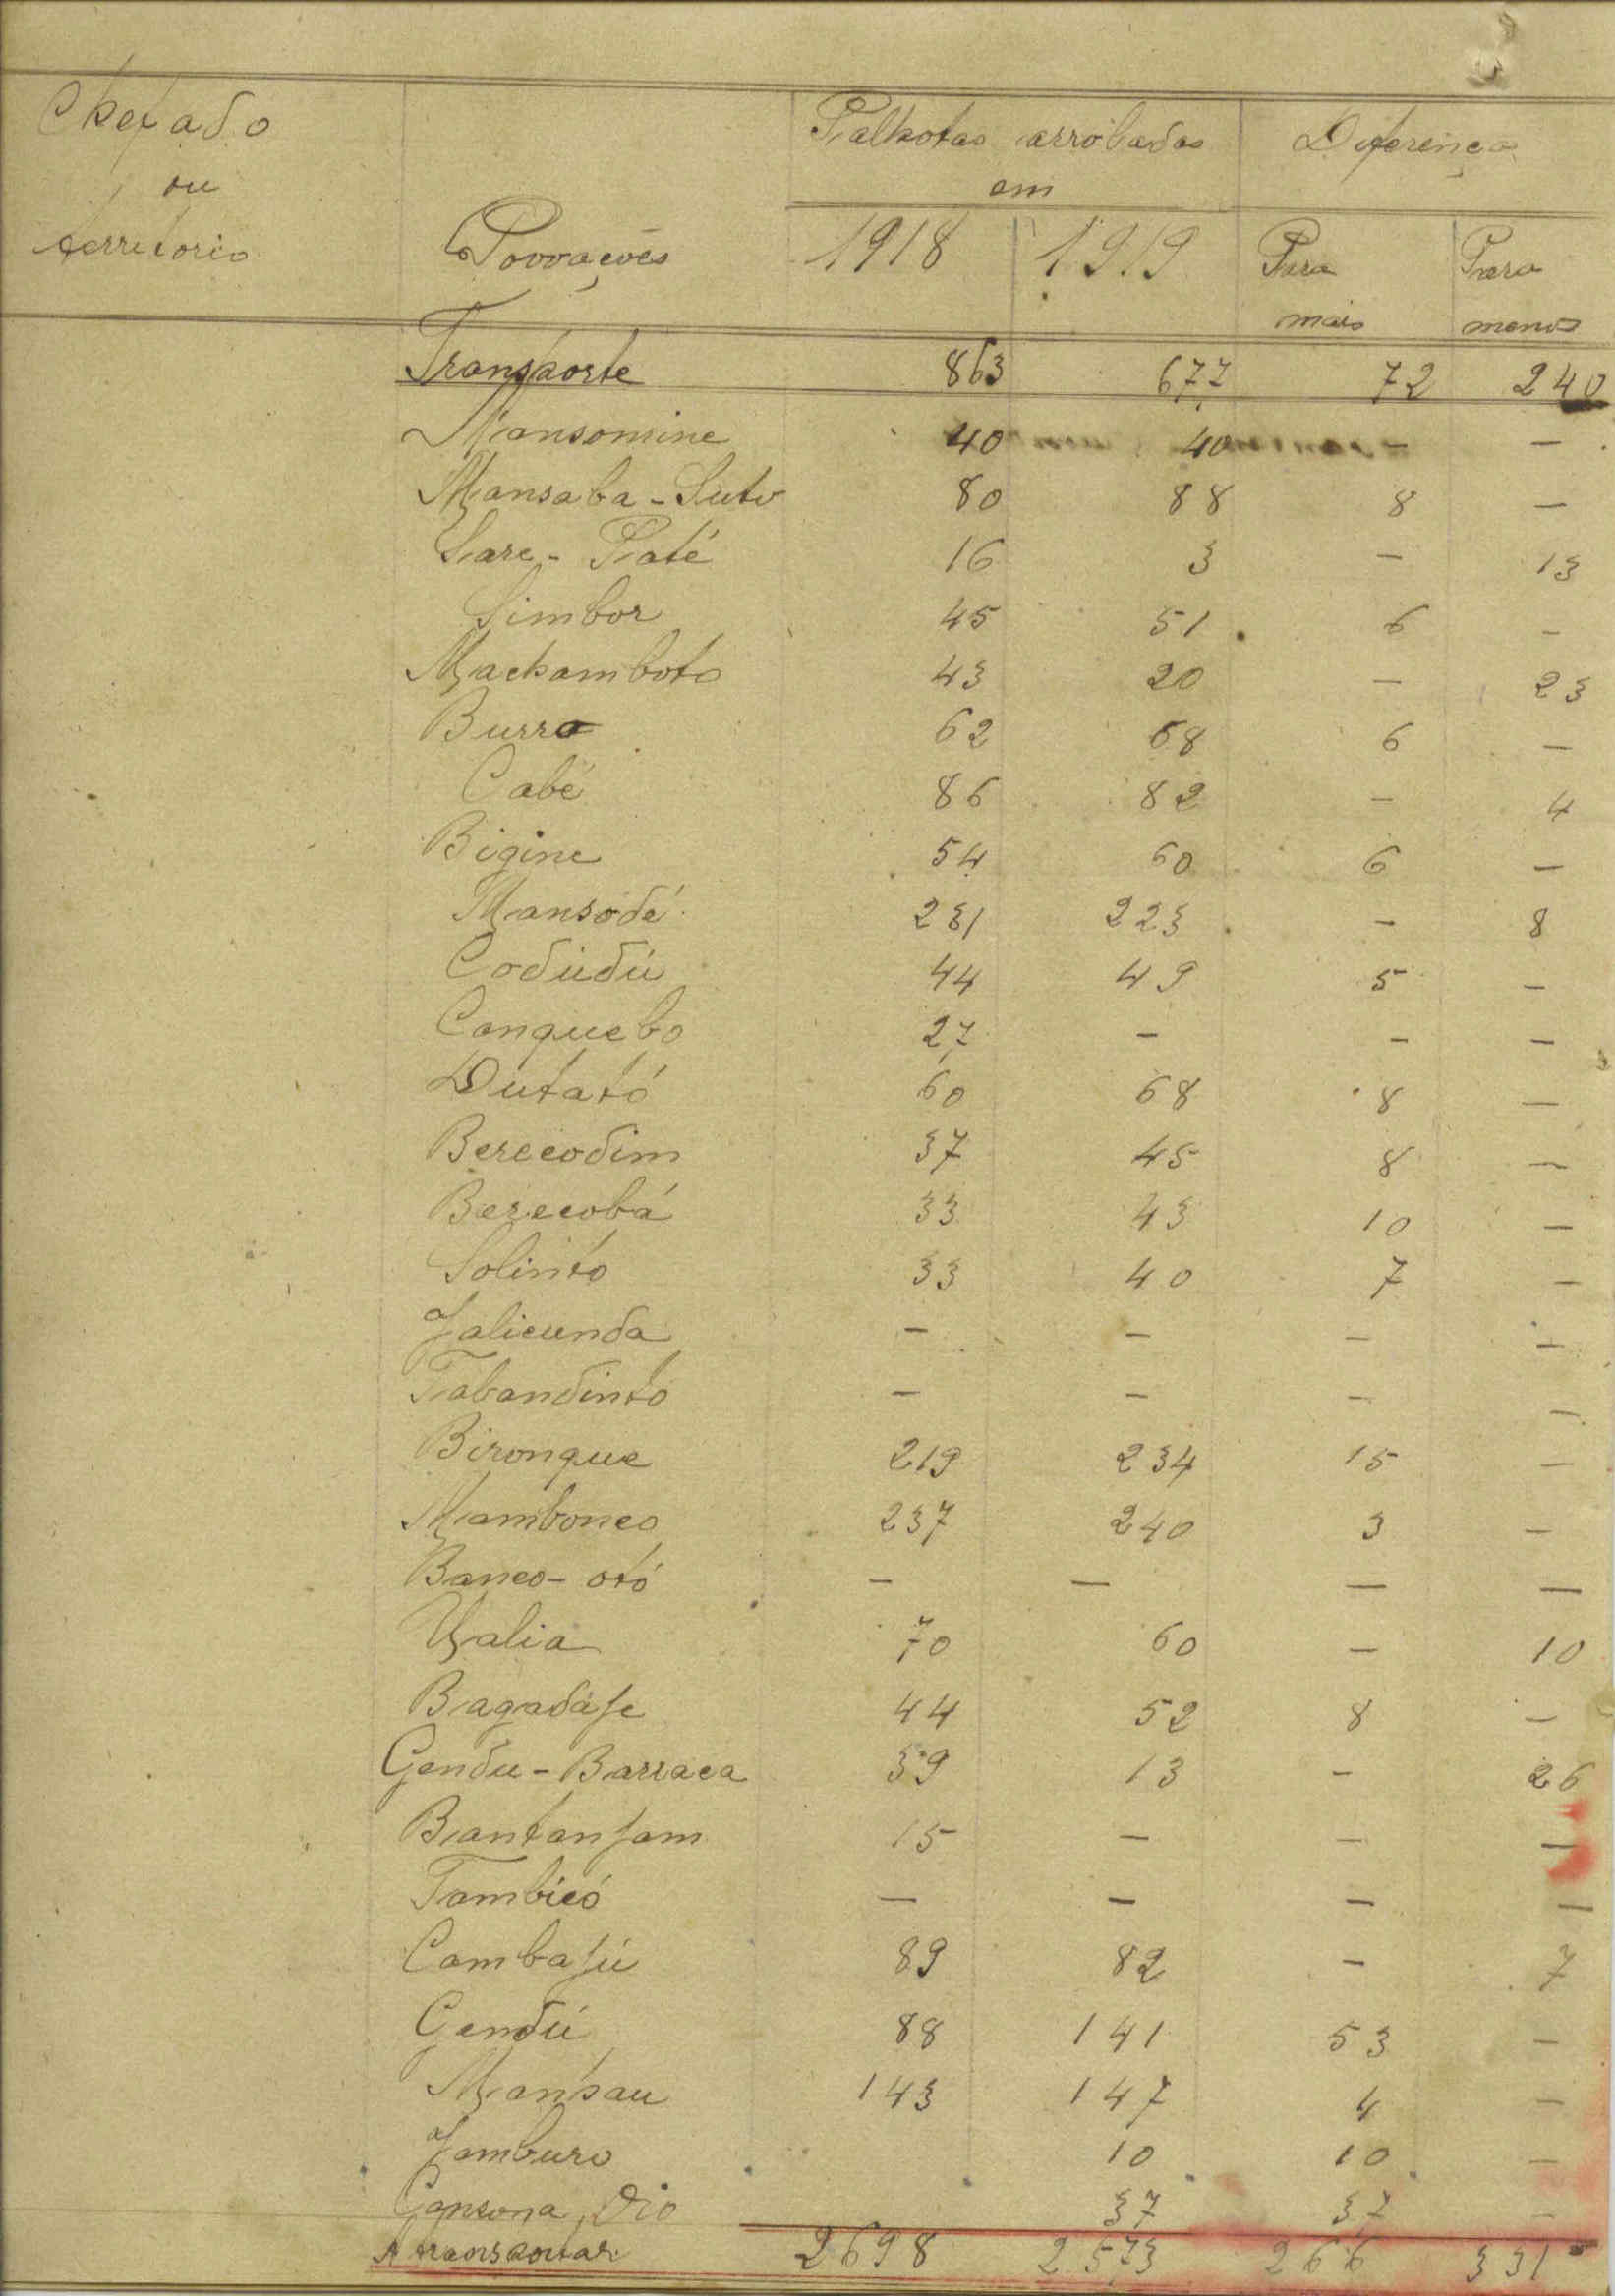 Chefado
ou
territorio
Povoações
Palhotas arroladas
em
1918 1919
Diferença
Para
mais
Para
menos
Transporte 863 677 72 240
Mansomine 40 40 — —
Mansaba-Suto 80 88 8 —
Sare-Paté 16 3 — 13
Simbor 45 51 6 —
Machamboto 43 20 — 23
Burro 62 68 6 —
Cabé 86 82 — 4
Bigine 54 60 6 —
Mansodé 231 223 — 8
Codúdú 44 49 5 —
Canquebo 27 — — —
Dutató 60 68 8 —
Berecodim 37 45 8 —
Berecobá 33 43 10 —
Solinto 33 40 7 —
Jalicunda — — — —
Tabandinto — — — —
Bironque 219 234 15 —
Mambonco 237 240 3 —
Banco-otó — — — —
Ualia 70 60 — 10
Bagadáje 44 52 8 —
Gendu-Barraca 39 13 — 26
Bantanjam 15 — — —
Tambicó — — — —
Cambajú 89 82 — 7
Gendú 88 141 53 —
Mansau 143 147 4 —
Jamburo 10 10 —
Cansona, Dio 37 37 —
A transportar 2698 2573 266 331